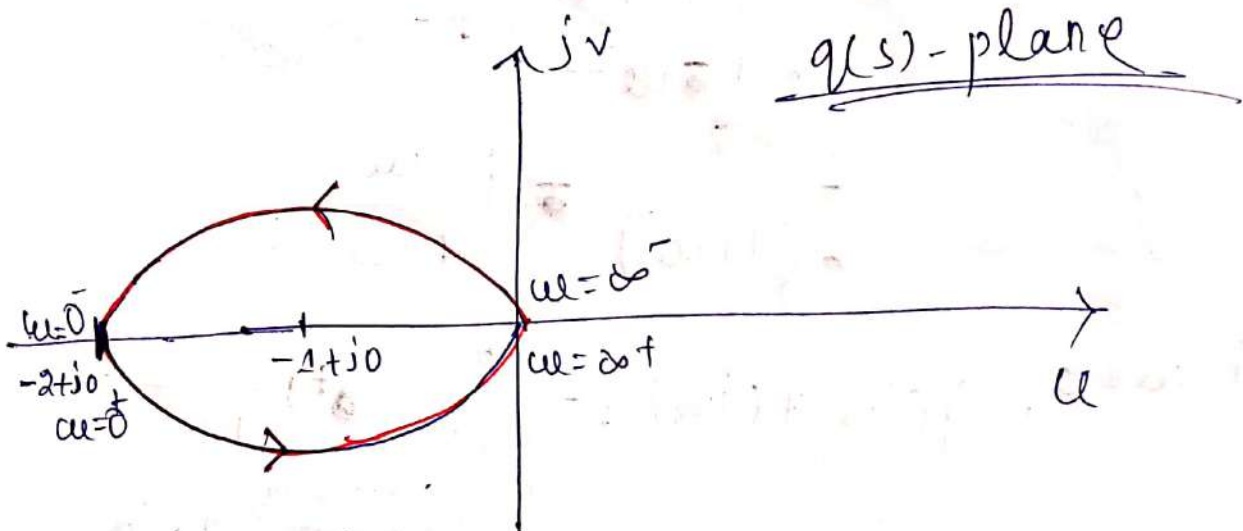 jv
q(s)-plane
ω=∞⁻
ω=0⁻
-1+j0
ω=∞+
-2+j0
u
ω=0⁺